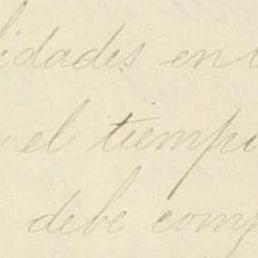 lidades en
el tiempo
debe comp